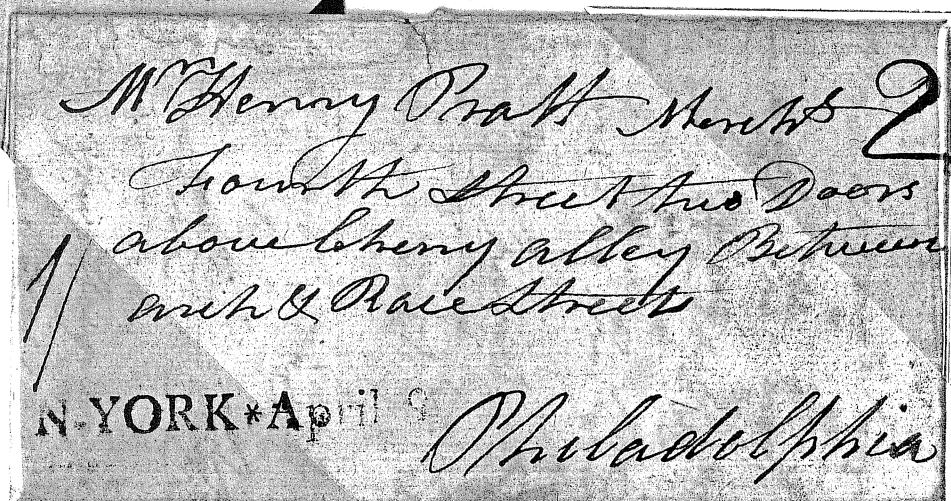 Mr Henry Pratt Mercht 2
Fourth Street two Doors
above Cherry alley Between
arch & Race Streets
N-YORK*April 9
Philadolphia